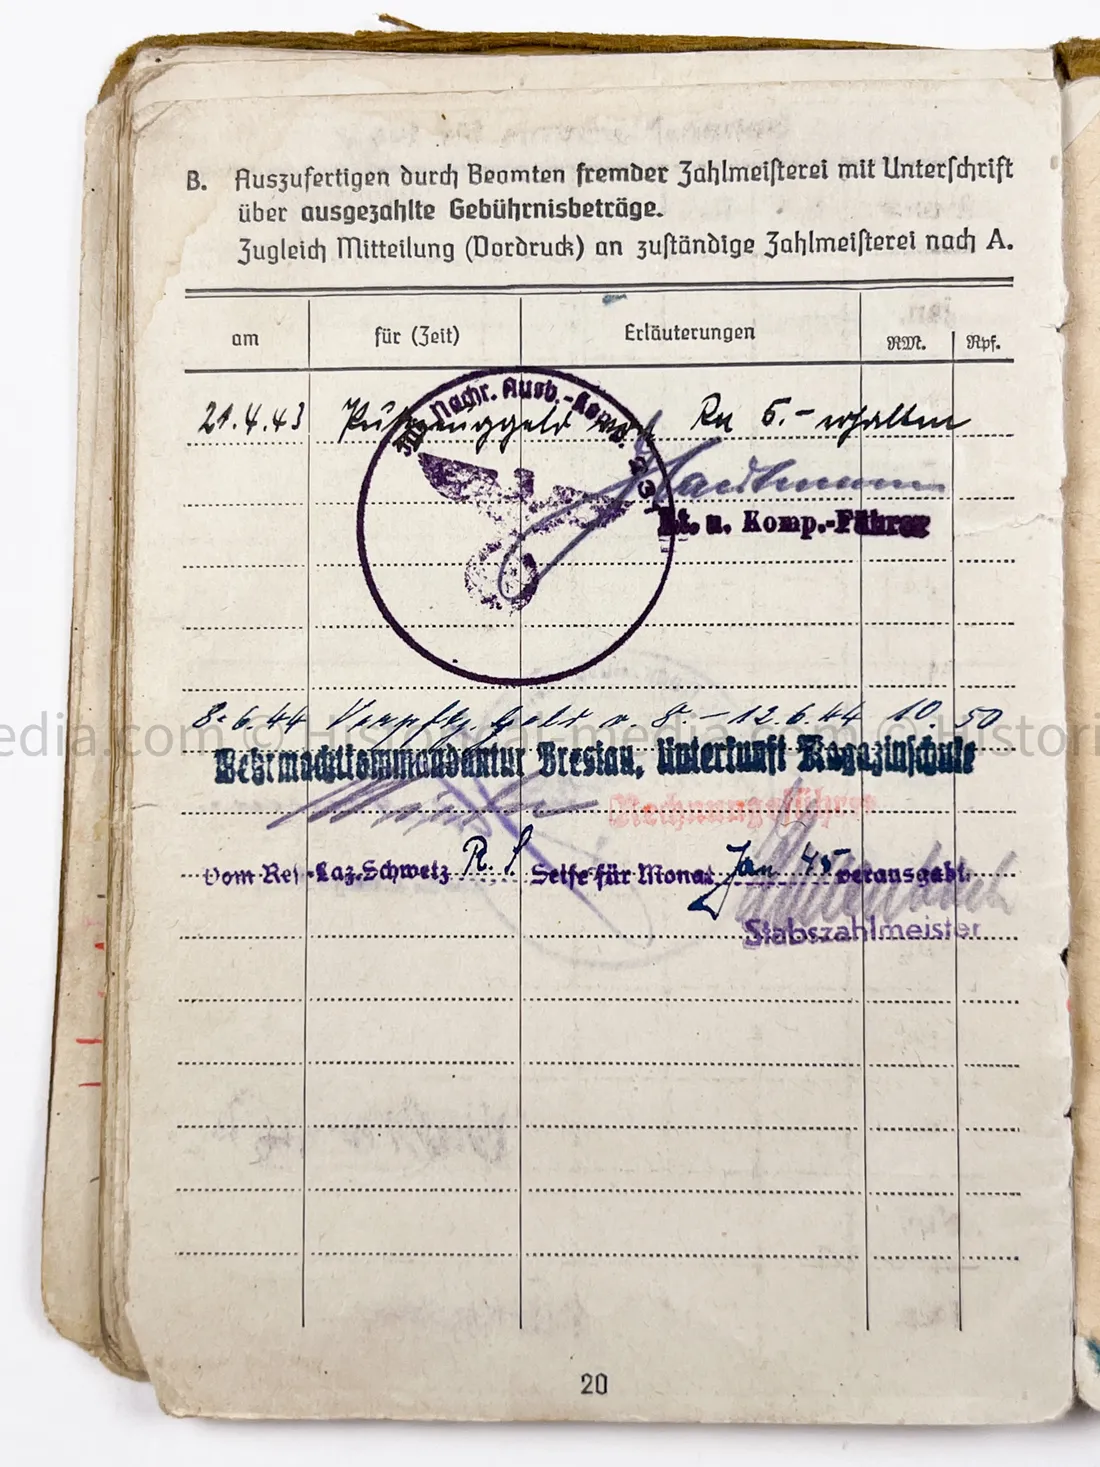 B. Auszufertigen durch Beamten fremder Zahlmeisterei mit Unterschrift
über ausgezahlte Gebührnisbeträge.
Zugleich Mitteilung (Vordruck) an zuständige Zahlmeisterei nach A.
am für (Zeit) Erläuterungen RM. Rpf.
Nachr. Ausb.-Komp.
21.4.43 Putzzeuggeld Rm 5.- erhalten
Lt. u. Komp.-Führer
8.6.44 Verpflg. Geld v. 8.-12.6.44 10.50
edia.com © Historical-media.com © Histori
Wehrmachtkommandantur Breslau, Unterkunft Magazinschule
Rechnungsführer
Vom Res.-Laz. Schwetz R. S. Seife für Monat Jan 45 verausgabt.
Stabszahlmeister
20